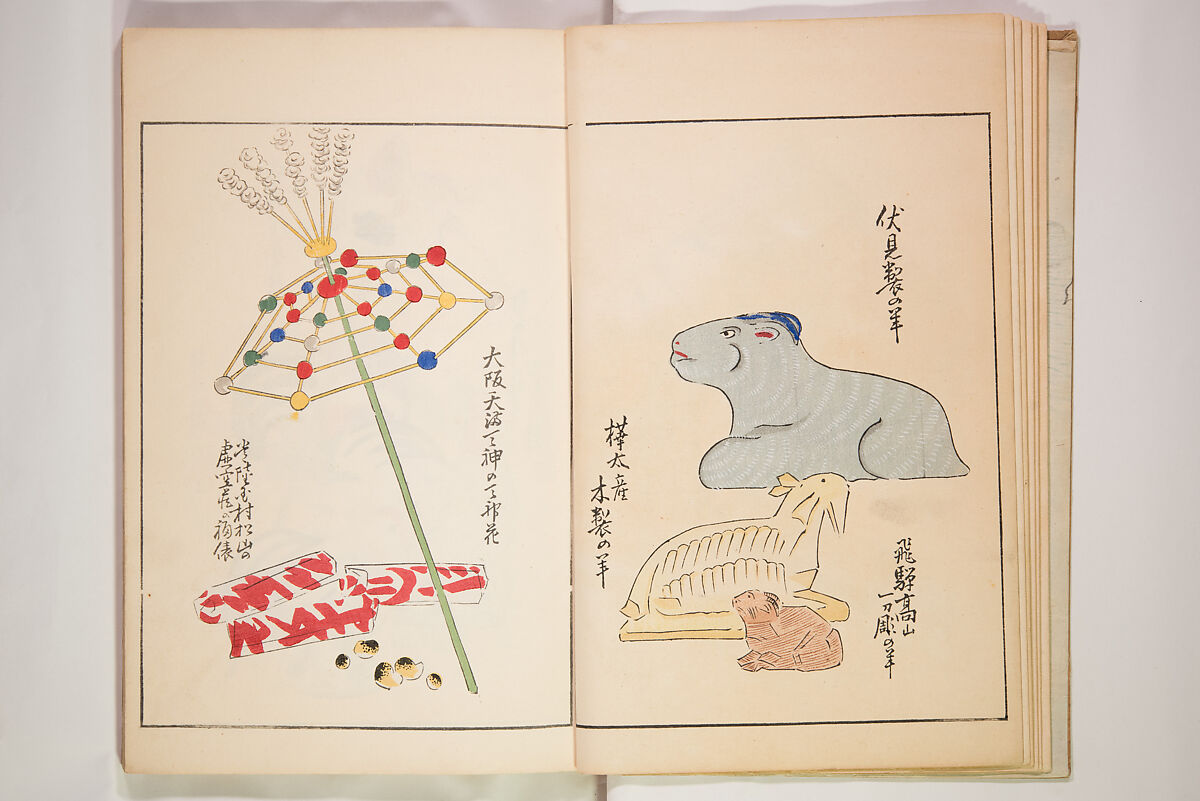 伏見製の羊
飛驒高山
一刀彫の羊
樺太産
木製の羊
大阪天満天神の天神花
常陸村松山の
虚空蔵の福俵